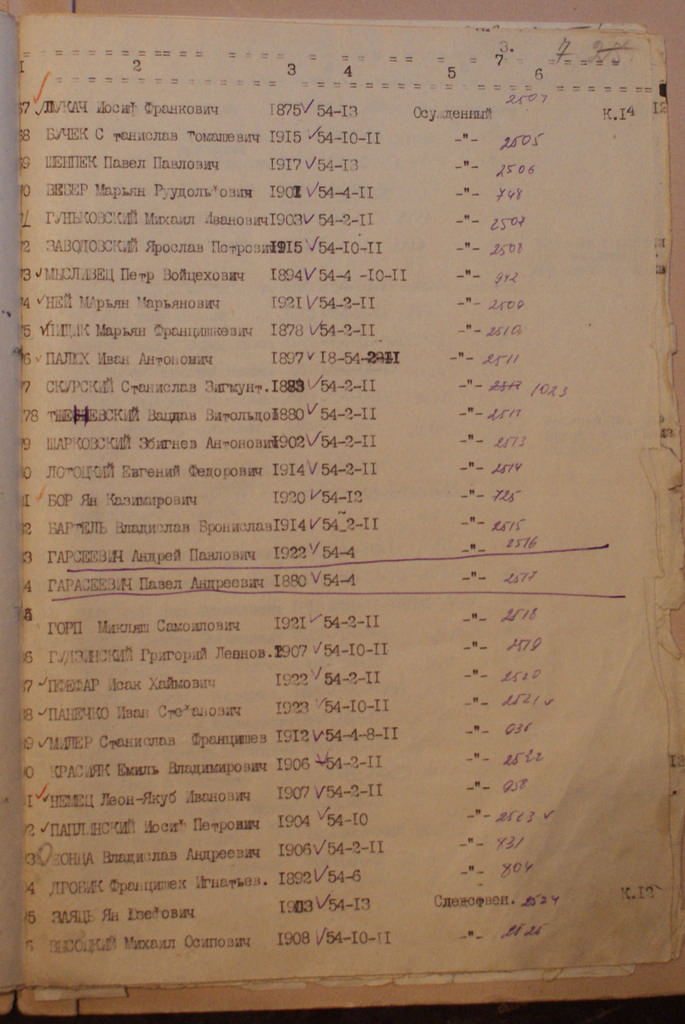 3. 7
1 2 3 4 5 7 6
67 ЛУКАЧ Иосиф Франкович 1875 54-13 Осужденный 2507 К.14 12
68 БУЧЕК Станислав Томашевич 1915 54-10-II -"- 2505
69 ШЕНПЕК Павел Павлович 1917 54-13 -"- 2506
70 ВЕБЕР Марьян Руудольфович 1901 54-4-II -"- 748
71 ГУНЬКОВСКИЙ Михаил Иванович 1903 54-2-II -"- 2507
72 ЗАВОДОВСКИЙ Ярослав Петрович 1915 54-10-II -"- 2508
73 МЫСЛИВЕЦ Петр Войцехович 1894 54-4 -10-II -"- 942
74 НЕЙ МАрьян Марьянович 1921 54-2-II -"- 2509
75 Марьян Францишкевич 1878 54-2-II -"- 2510
76 ПАЛЮХ Иван Антонович 1897 18-54- -"- 2511
77 СКУРСКИЙ Станислав Зигмунт. 1883 54-2-II -"- 1023
78 Вацлав Витольдов 1880 54-2-II -"-
79 ШАРКОВСКИЙ Збигнев Антонович 1902 54-2-II -"- 2513
80 ЛОТОЦКИЙ Евгений Федорович 1914 54-2-II -"- 2514
81 БОР Ян Казимирович 1920 54-12 -"- 725
82 БАРТЕЛЬ Владислав Бронислав 1914 54_2-II -"- 2515
83 ГАРСЕЕВИЧ Андрей Павлович 1922 54-4 -"- 2516
84 ГАРАСЕЕВИЧ Павел Андреевич 1880 54-4 -"- 2517
85 ГОРП Микляш Самоилович 1921 54-2-II -"- 2518
86 ГУДЗИНСКИЙ Григорий Леонов. 1907 54-10-II -"- 2519
87 Исак Хаймович 1922 54-2-II -"- 2520
88 ПАНЕЧКО Иван Стефанович 1923 54-10-II -"- 2521
89 МИЛЕР Станислав Францишев 1912 54-4-8-II -"-
90 КРАСИЯК Емиль Владимирович 1906 54-2-II -"- 2522
91 НЕМЕЦ Леон-Якуб Иванович 1907 54-2-II -"- 958
92 ПАПЛИНСКИЙ Иосиф Петрович 1904 54-10 -"- 2523
93 Владислав Андреевич 1906 54-2-II -"- 831
94 ДРОБИК Францишек Игнатьев. 1892 54-6 -"- 804
95 ЗАЯЦЬ Ян Юзефович 1903 54-13 Следствен. 2524 К.12
96 ВЫСОЦКИЙ Михаил Осипович 1908 54-10-II -"- 2525